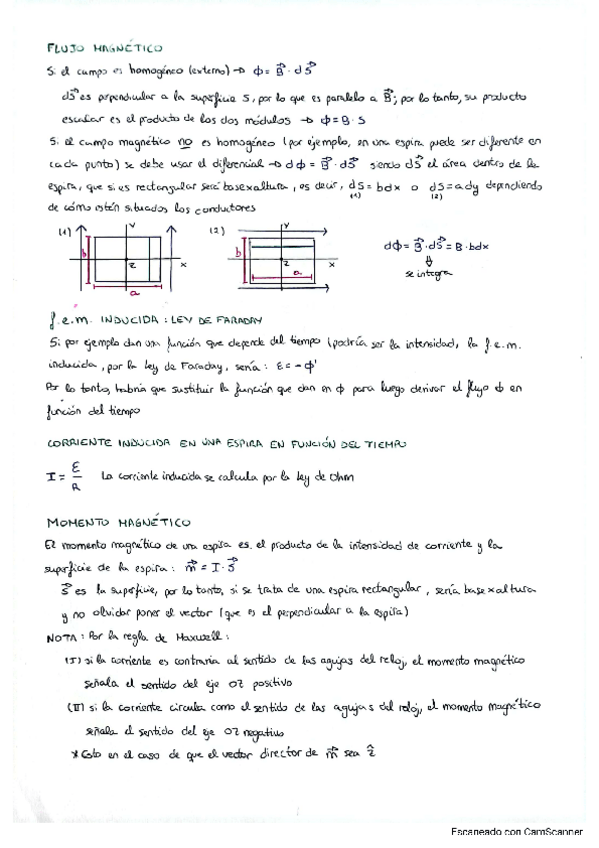 FLUJO MAGNÉTICO
Si el campo es homogéneo (externo) → ϕ = B⃗ · dS⃗
dS⃗ es perpendicular a la superficie S, por lo que es paralelo a B⃗; por lo tanto, su producto
escalar es el producto de los dos módulos → ϕ = B · S
Si el campo magnético no es homogéneo (por ejemplo, en una espira puede ser diferente en
cada punto) se debe usar el diferencial → dϕ = B⃗ · dS⃗ siendo dS⃗ el área dentro de la
espira, que si es rectangular será base x altura, es decir, dS = b dx o dS = a dy dependiendo
(1) (2)
de cómo estén situados los conductores
(1) y b z x a
(2) y b z x a
dϕ = B⃗ · dS⃗ = B · b dx
⇓
se integra
f.e.m. INDUCIDA : LEY DE FARADAY
Si por ejemplo dan una función que depende del tiempo (podría ser la intensidad, la f.e.m.
inducida, por la ley de Faraday, sería : ε = - ϕ'
Por lo tanto, habría que sustituir la función que dan en ϕ para luego derivar el flujo ϕ en
función del tiempo
CORRIENTE INDUCIDA EN UNA ESPIRA EN FUNCIÓN DEL TIEMPO
I = ε/R La corriente inducida se calcula por la ley de Ohm
MOMENTO MAGNÉTICO
El momento magnético de una espira es el producto de la intensidad de corriente y la
superficie de la espira : m⃗ = I · S⃗
S⃗ es la superficie, por lo tanto, si se trata de una espira rectangular, sería base x altura
y no olvidar poner el vector (que es el perpendicular a la espira)
NOTA : Por la regla de Maxwell :
(I) si la corriente es contraria al sentido de las agujas del reloj, el momento magnético
señala el sentido del eje OZ positivo
(II) si la corriente circula como el sentido de las agujas del reloj, el momento magnético
señala el sentido del eje OZ negativo
* Esto en el caso de que el vector director de m⃗ sea ẑ
Escaneado con CamScanner